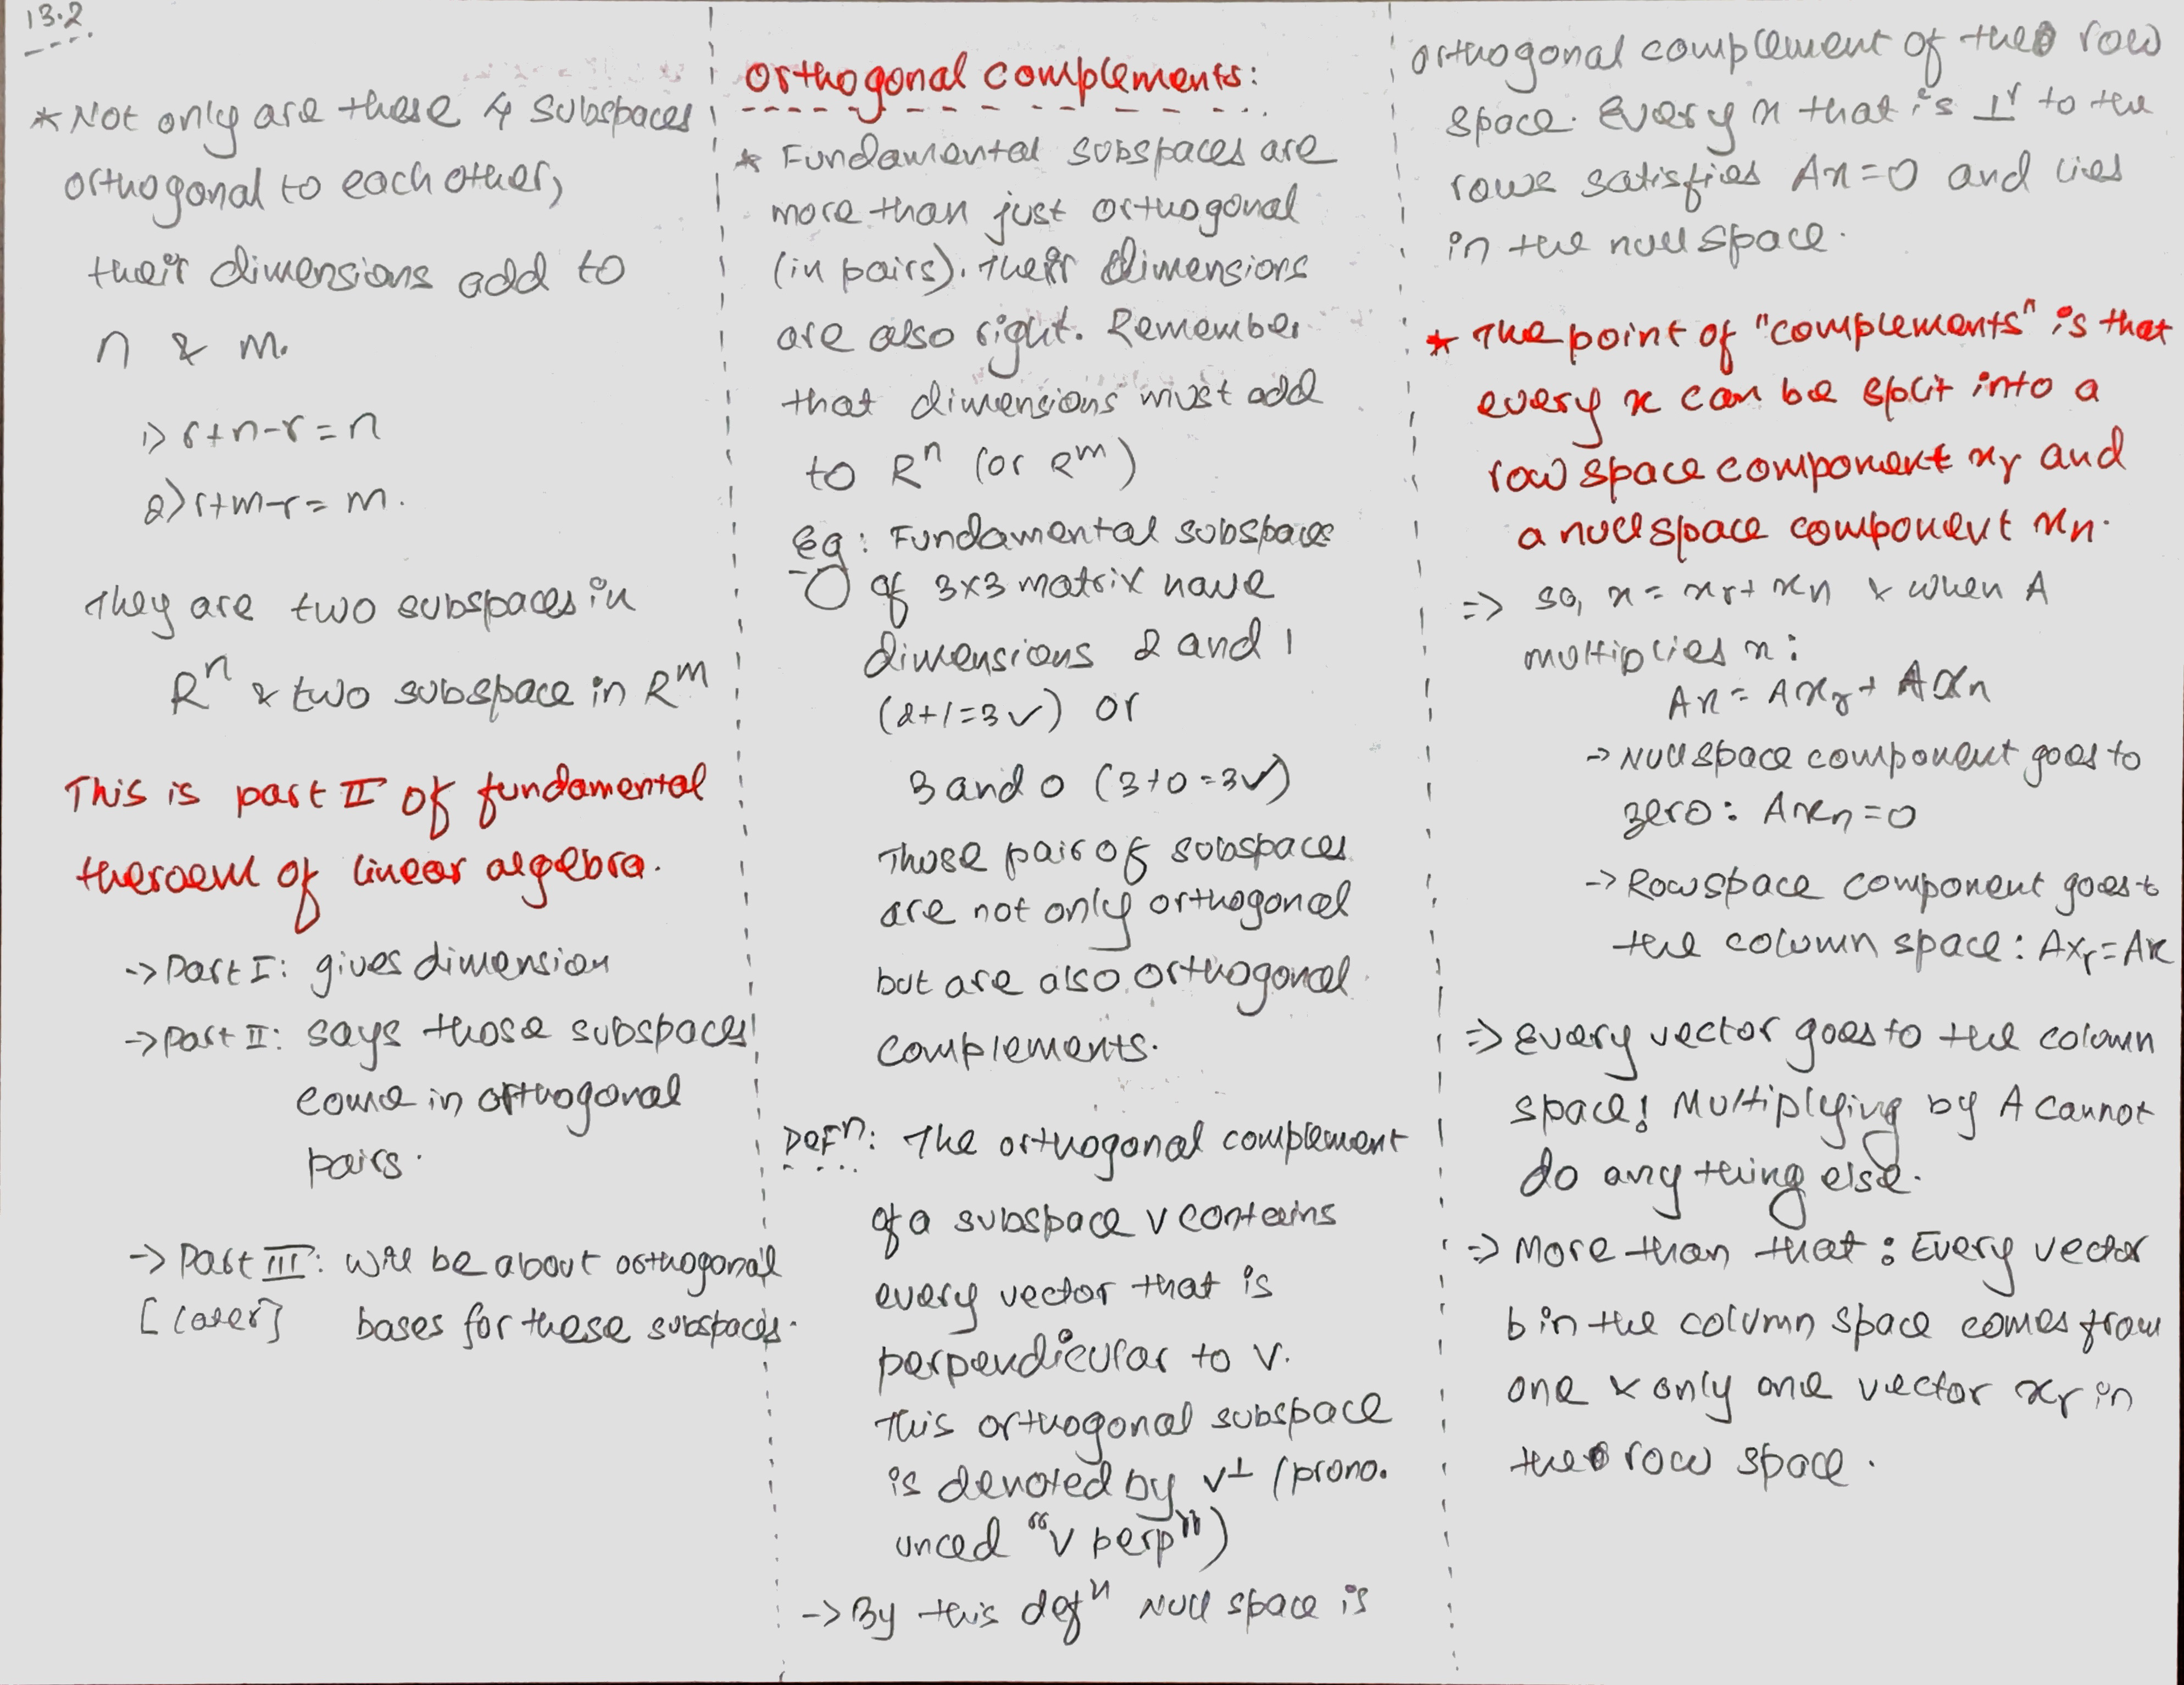 13.2
* Not only are these 4 subspaces
orthogonal to each other,
their dimensions add to
n & m.
1) r+n-r = n
2) r+m-r = m.
They are two subspaces in
Rⁿ & two subspace in Rᵐ
This is part II of fundamental
theroem of linear algebra.
-> Part I: gives dimension
-> Part II: says those subspaces
come in orthogonal
pairs.
-> Part III: will be about orthogonal
[later] bases for these subspaces.
Orthogonal complements:
* Fundamental subspaces are
more than just orthogonal
(in pairs). Their dimensions
are also right. Remember
that dimensions must add
to Rⁿ (or Rᵐ)
Eg: Fundamental subspaces
of 3x3 matrix have
dimensions 2 and 1
(2+1=3✓) or
3 and 0 (3+0=3✓)
Those pair of subspaces
are not only orthogonal
but are also orthogonal
complements.
Defⁿ: The orthogonal complement
of a subspace V contains
every vector that is
perpendicular to V.
This orthogonal subspace
is denoted by V⊥ (prono.
unced "V perp")
-> By this defⁿ Null space is
orthogonal complement of the row
space. Every x that is ⊥ʳ to the
rows satisfies Ax=0 and lies
in the null space.
* The point of "complements" is that
every x can be split into a
row space component xᵣ and
a nullspace component xₙ.
=> so, x = xᵣ + xₙ & when A
multiplies x:
Ax = Axᵣ + Axₙ
-> Nullspace component goes to
zero: Axₙ=0
-> Rowspace component goes to
the column space: Axᵣ=Ax
=> Every vector goes to the column
space! Multiplying by A cannot
do any thing else.
=> More than that: Every vector
b in the column space comes from
one & only one vector xᵣ in
the row space.